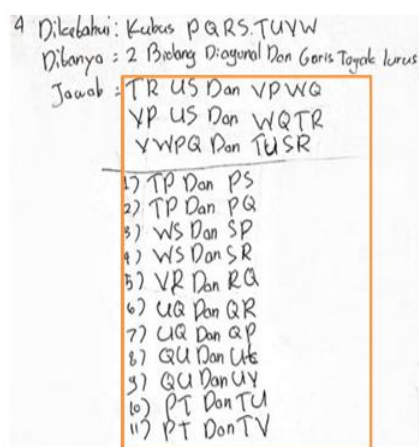 4 Diketahui : Kubus PQRS.TUVW
Ditanya : 2 Bidang Diagonal Dan Garis Tegak lurus
Jawab : TR US Dan VPWQ
VP US Dan WQTR
VWPQ Dan TUSR
1) TP Dan PS
2) TP Dan PQ
3) WS Dan SP
4) WS Dan SR
5) VR Dan RQ
6) UQ Dan QR
7) UQ Dan QP
8) QU Dan
9) QU Dan UV
10) PT Dan TU
11) PT Dan TV